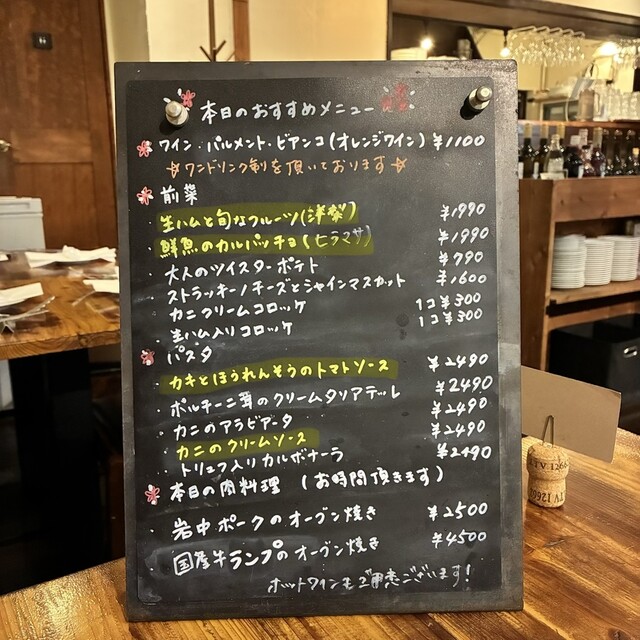 本日のおすすめメニュー
ワイン・パルメント・ビアンコ(オレンジワイン) ¥1100
☆ワンドリンク制を頂いております☆
前菜
・生ハムと旬なフルーツ(洋梨) ¥1990
・鮮魚のカルパッチョ(ヒラマサ) ¥1990
・大人のツイスターポテト ¥790
・ストラッキーノチーズとシャインマスカット ¥1600
・カニクリームコロッケ 1コ¥300
・生ハム入りコロッケ 1コ¥300
パスタ
・カキとほうれんそうのトマトソース ¥2490
・ポルチーニ茸のクリームタリアテッレ ¥2490
・カニのアラビアータ ¥2490
・カニのクリームソース ¥2490
・トリュフ入りカルボナーラ ¥2490
本日の肉料理 (お時間頂きます)
・岩中ポークのオーブン焼き ¥2500
・国産牛ランプのオーブン焼き ¥4500
ホットワインもご用意ございます!